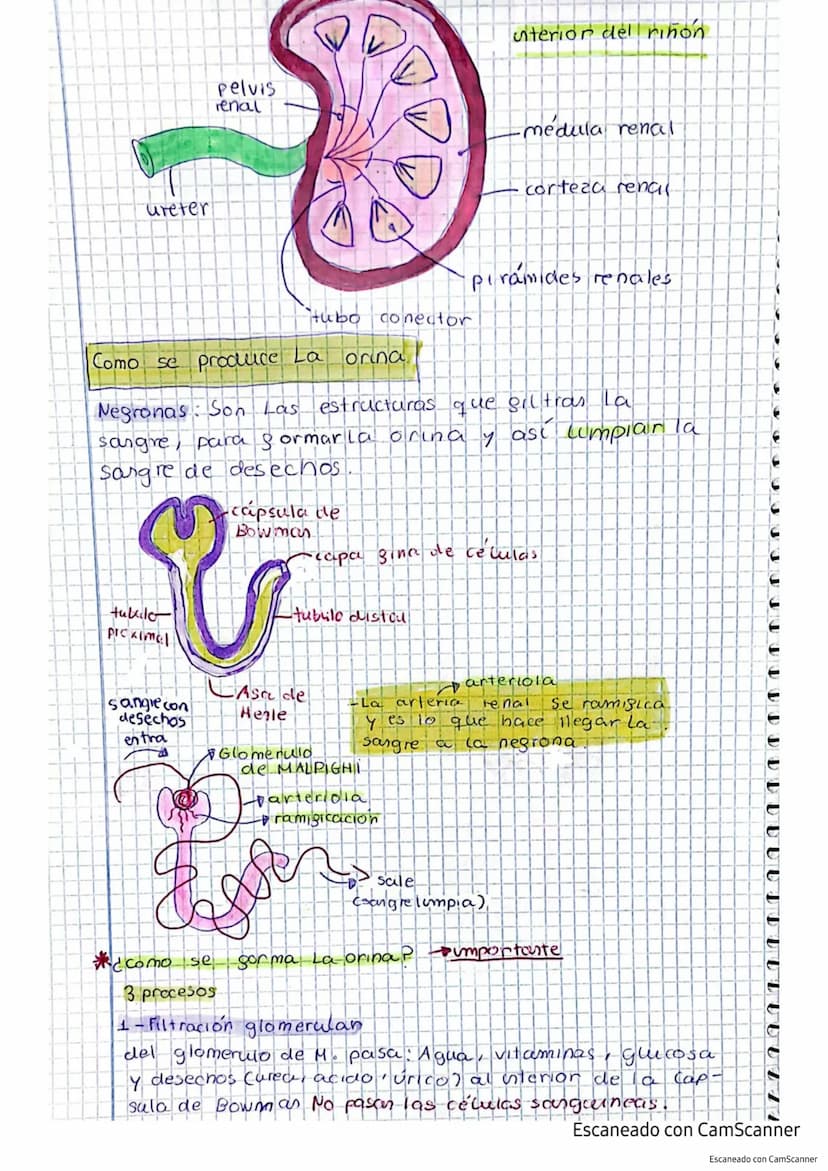 interior del riñón
pelvis
renal
médula renal
corteza renal
ureter
pirámides renales
tubo conector
Como se produce La orina.
Negronas: Son Las estructuras que giltras La
sangre, para gormar la orina y así limpiar la
sangre de desechos.
cápsula de
Bowman
capa gina de células
tubulo
proximal
tubulo distal
Asa de
Henle
arteriola
-La arteria renal se ramigica
y es lo que hace llegar La
sangre a la negrona.
sangre con
desechos
entra
Glomerulo
de MALPIGHI
arteriola
ramigicación
sale
(sangre limpia)
*¿cómo se gorma La orina? →importante
3 procesos
1-Filtración glomerular
del glomerulo de M. pasa: Agua, vitaminas, glucosa
y desechos (urea, acido, úrico) al interior de la cap-
sula de Bowman No pasan las células sanguineas.
Escaneado con CamScanner
Escaneado con CamScanner